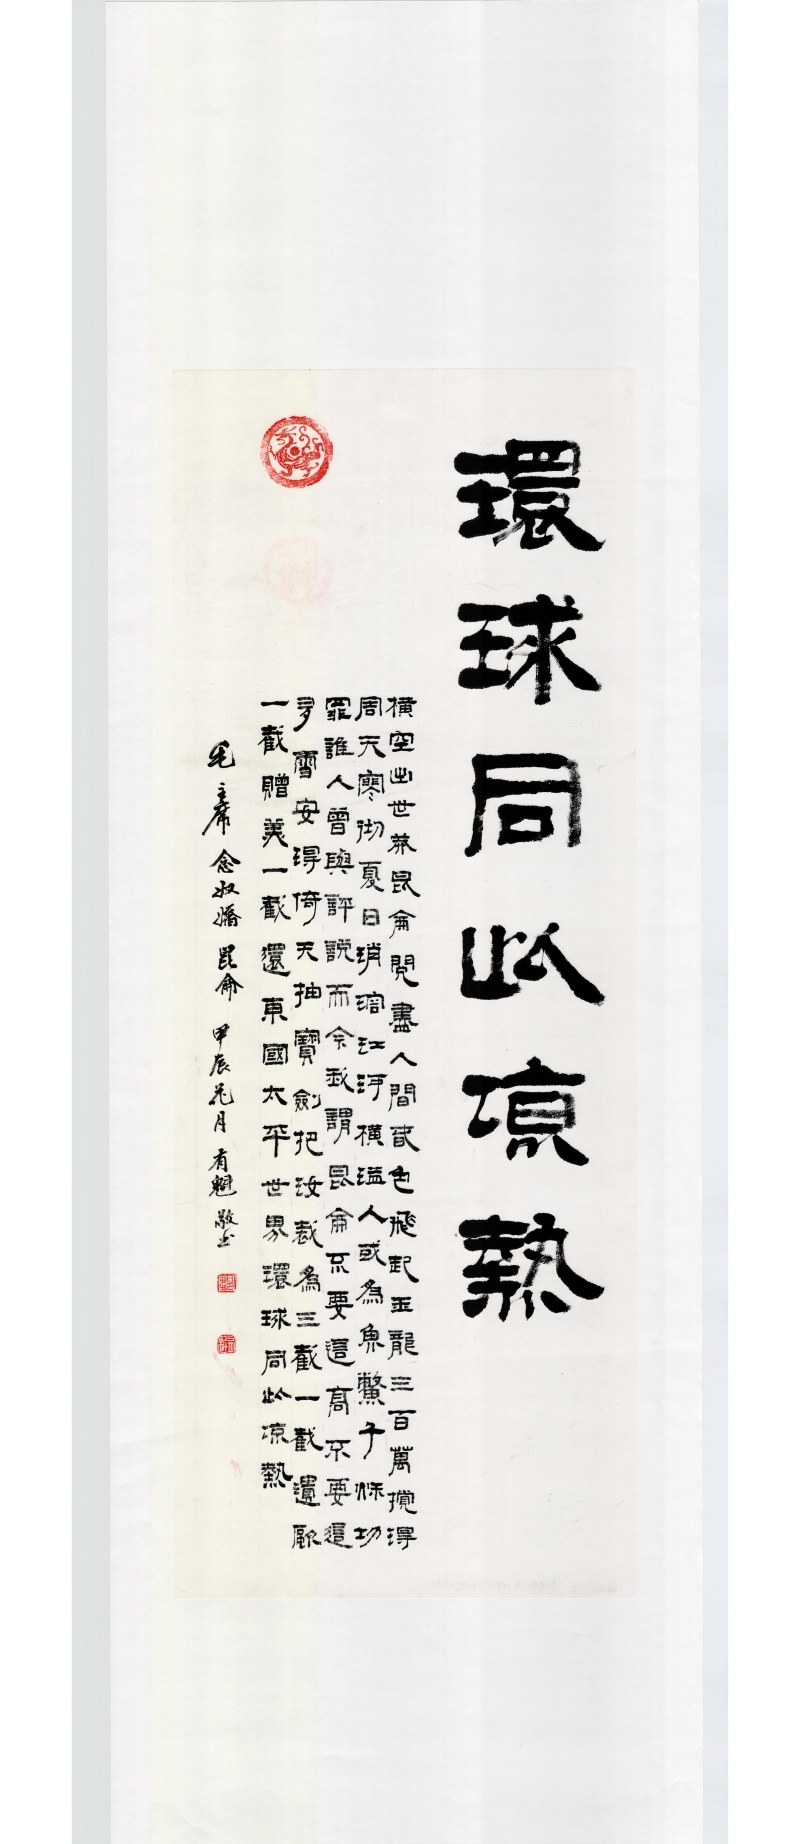 環球同此凉熱
橫空出世莽昆侖閱盡人間春色飛起玉龍三百萬攪得
周天寒彻夏日消溶江河橫溢人或為魚鱉千秋功
罪誰人曾與評說而今我謂昆侖不要這高不要這
多雪安得倚天抽寶劍把汝裁為三截一截遺歐
一截贈美一截還東國太平世界環球同此凉熱
毛主席念奴嬌昆侖 甲辰花月 有魁敬书